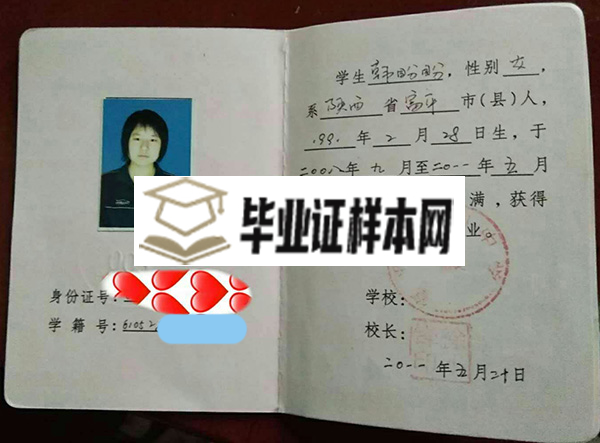 身份证号:
学籍号:61052
毕业证样本网
学生韩盼盼,性别女,
系陕西省富平市(县)人,
199 年2月28日生,于
二00八年九月至二0一一年五月
满,获得
业。
学校:
校长:
二0一一年五月二十日